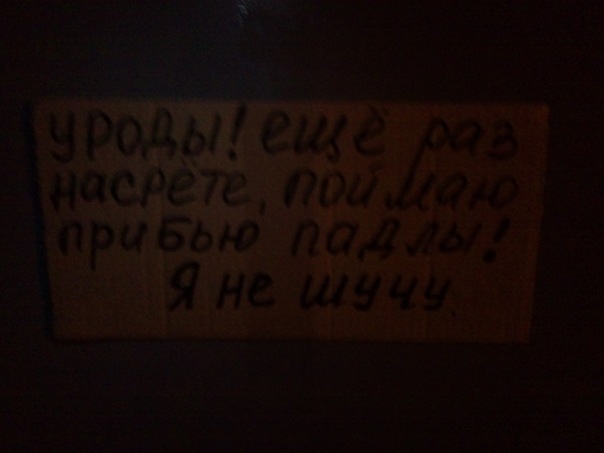 уроды! ещё раз
насрёте, поймаю
прибью падлы!
Я не шучу.